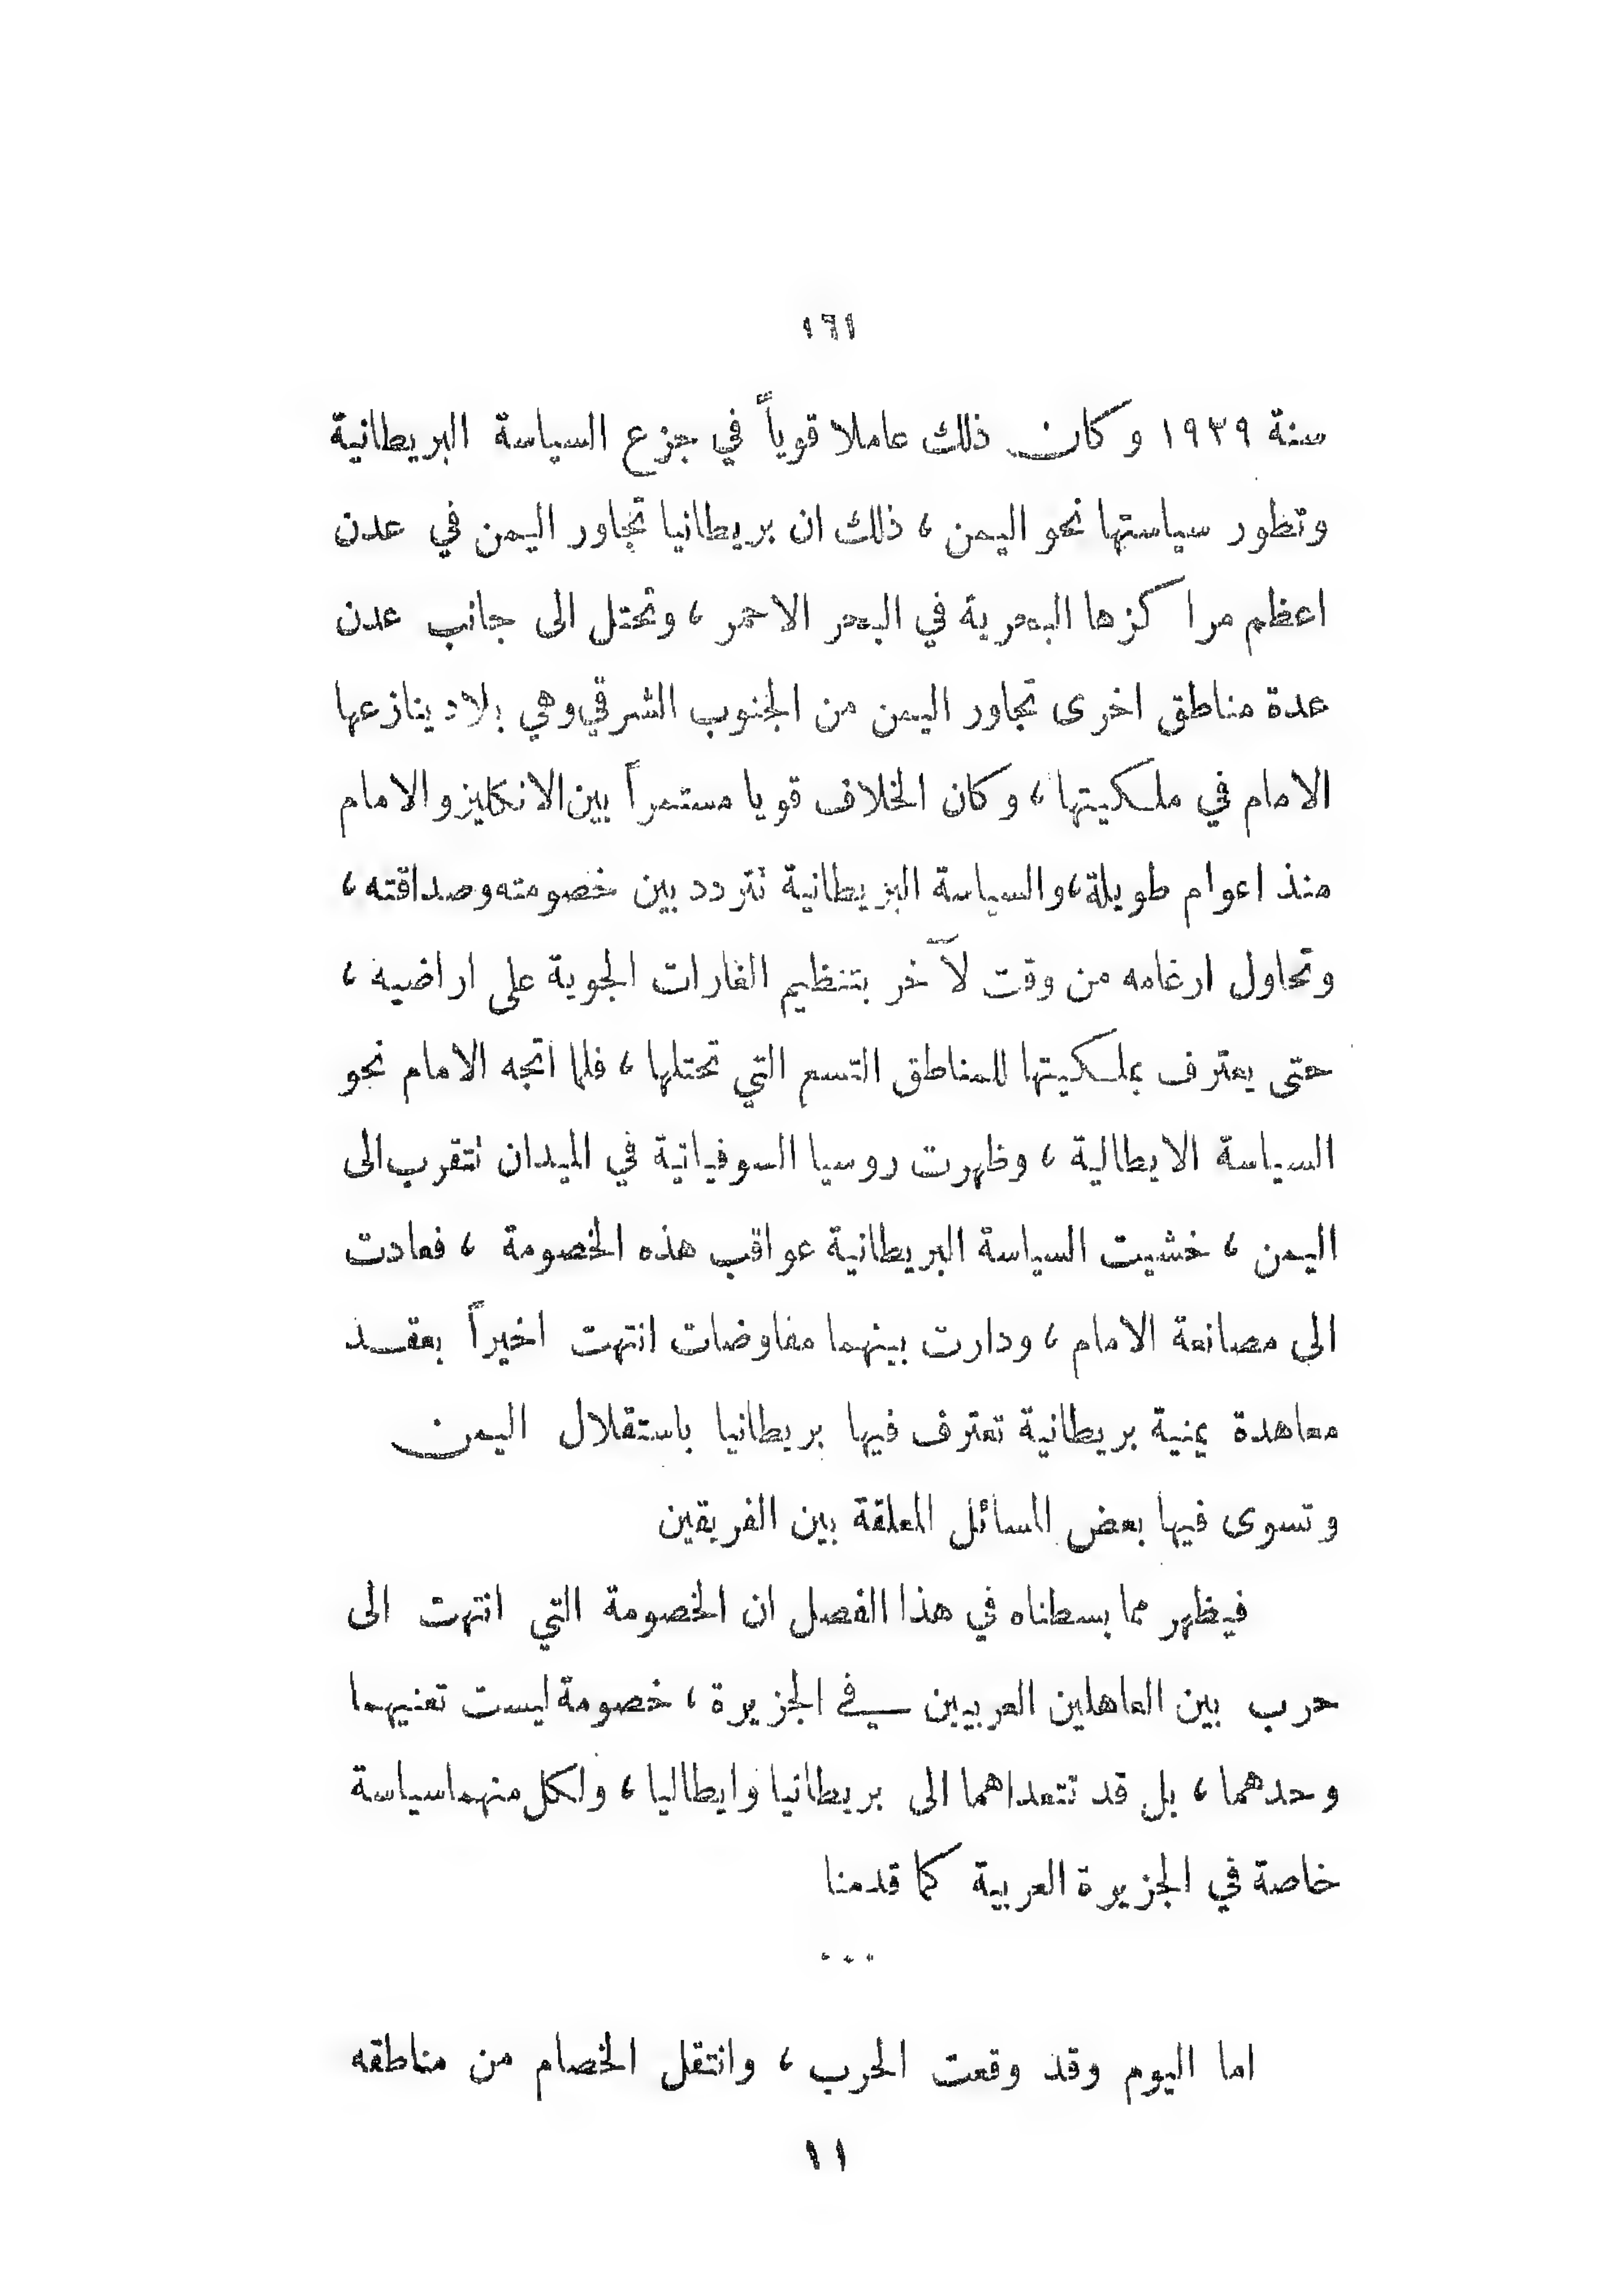 ١٦١
سنة ١٩٣٩ وكان ذلك عاملا قوياً في جزع السياسة البريطانية
وتطور سياستها نحو اليمن ، ذلك ان بريطانيا تجاور اليمن في عدن
اعظم مراكزها البحرية في البحر الاحمر ، وتحتل الى جانب عدن
عدة مناطق اخرى تجاور اليمن من الجنوب الشرقي وهي بلاد ينازعها
الامام في ملكيتها ، وكان الخلاف قويا مستمراً بين الانكليز والامام
منذ اعوام طويلة ، والسياسة البريطانية نتردد بين خصومته وصداقته ،
وتحاول ارغامه من وقت لآخر بتنظيم الغارات الجوية على اراضيه ،
حتى يعترف بملكيتها للمناطق التسع التي تحتلها ، فلما اتجه الامام نحو
السياسة الايطالية ، وظهرت روسيا السوفياتية في الميدان نتقرب الى
اليمن ، خشيت السياسة البريطانية عواقب هذه الخصومة ، فعادت
الى مصانعة الامام ، ودارت بينهما مفاوضات انتهت اخيراً بعقد
معاهدة يمنية بريطانية تعترف فيها بريطانيا باستقلال اليمن
وتسوى فيها بعض المسائل المعلقة بين الفريقين
فيظهر مما بسطناه في هذا الفصل ان الخصومة التي انتهت الى
حرب بين العاهلين العربيين في الجزيرة ، خصومة ليست تعنيهما
وحدهما ، بل قد تتعداهما الى بريطانيا وايطاليا ، ولكل منهما سياسة
خاصة في الجزيرة العربية كما قدمنا
...
اما اليوم وقد وقعت الحرب ، وانتقل الخصام من مناطقه
١١